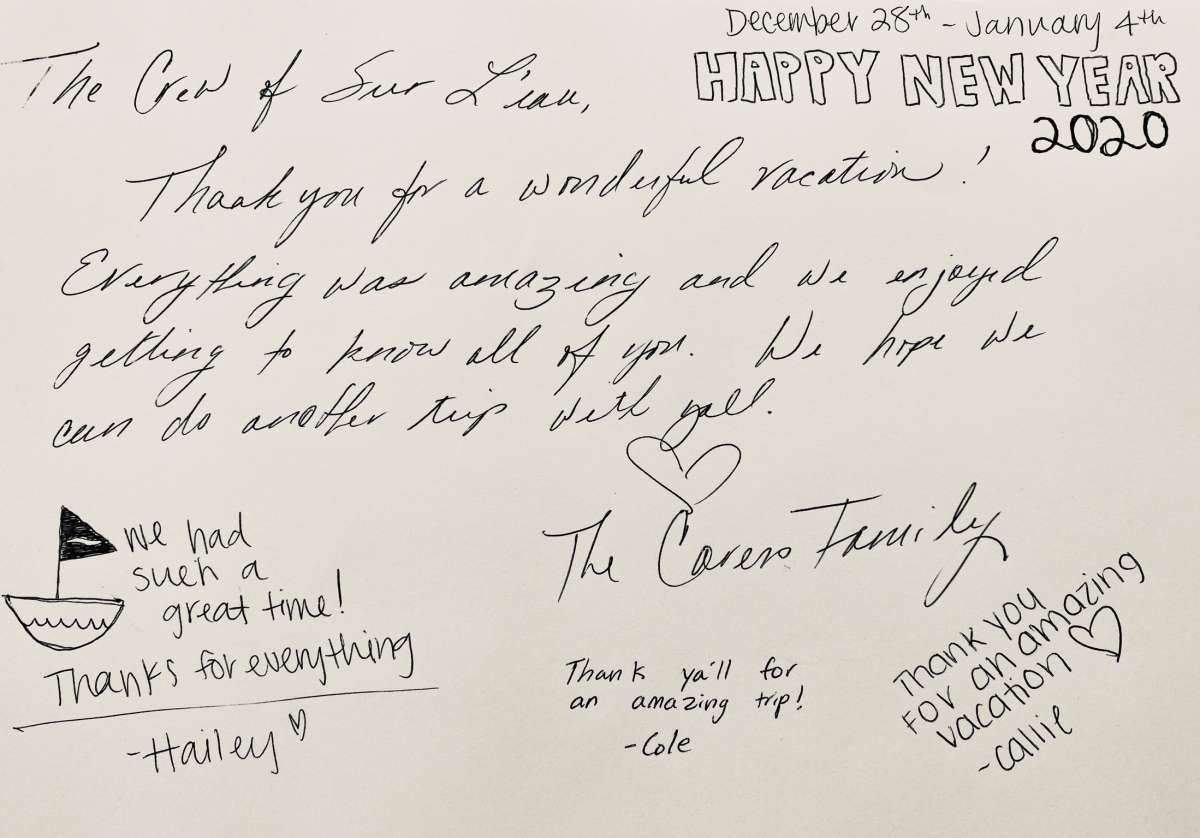 December 28th - January 4th
HAPPY NEW YEAR
2020
The Crew of Sur L'eau,
Thank you for a wonderful vacation!
Everything was amazing and we enjoyed
getting to know all of you. We hope we
can do another trip with yall.
The Covers Family
we had
such a
great time!
Thanks for everything
-Hailey
Thank ya'll for
an amazing trip!
-Cole
Thank you
for an amazing
vacation
-Callie